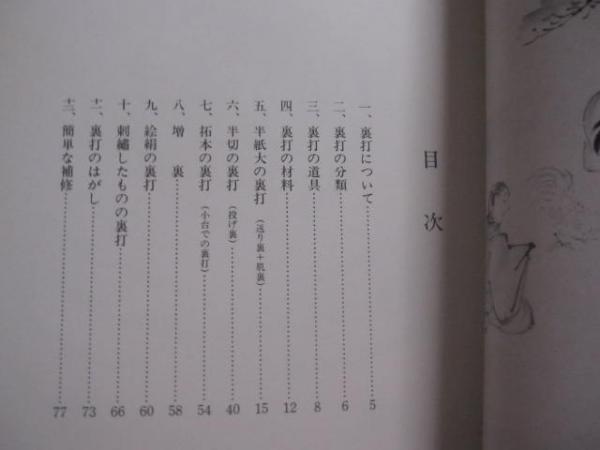 目次
一、裏打について 5
二、裏打の分類 6
三、裏打の道具 8
四、裏打の材料 12
五、半紙大の裏打（送り裏＋肌裏） 15
六、半切の裏打（投げ裏） 40
七、拓本の裏打（小台での裏打） 54
八、増裏 58
九、絵絹の裏打 60
十、刺繡したものの裏打 66
十一、裏打のはがし 73
十二、簡単な補修 77